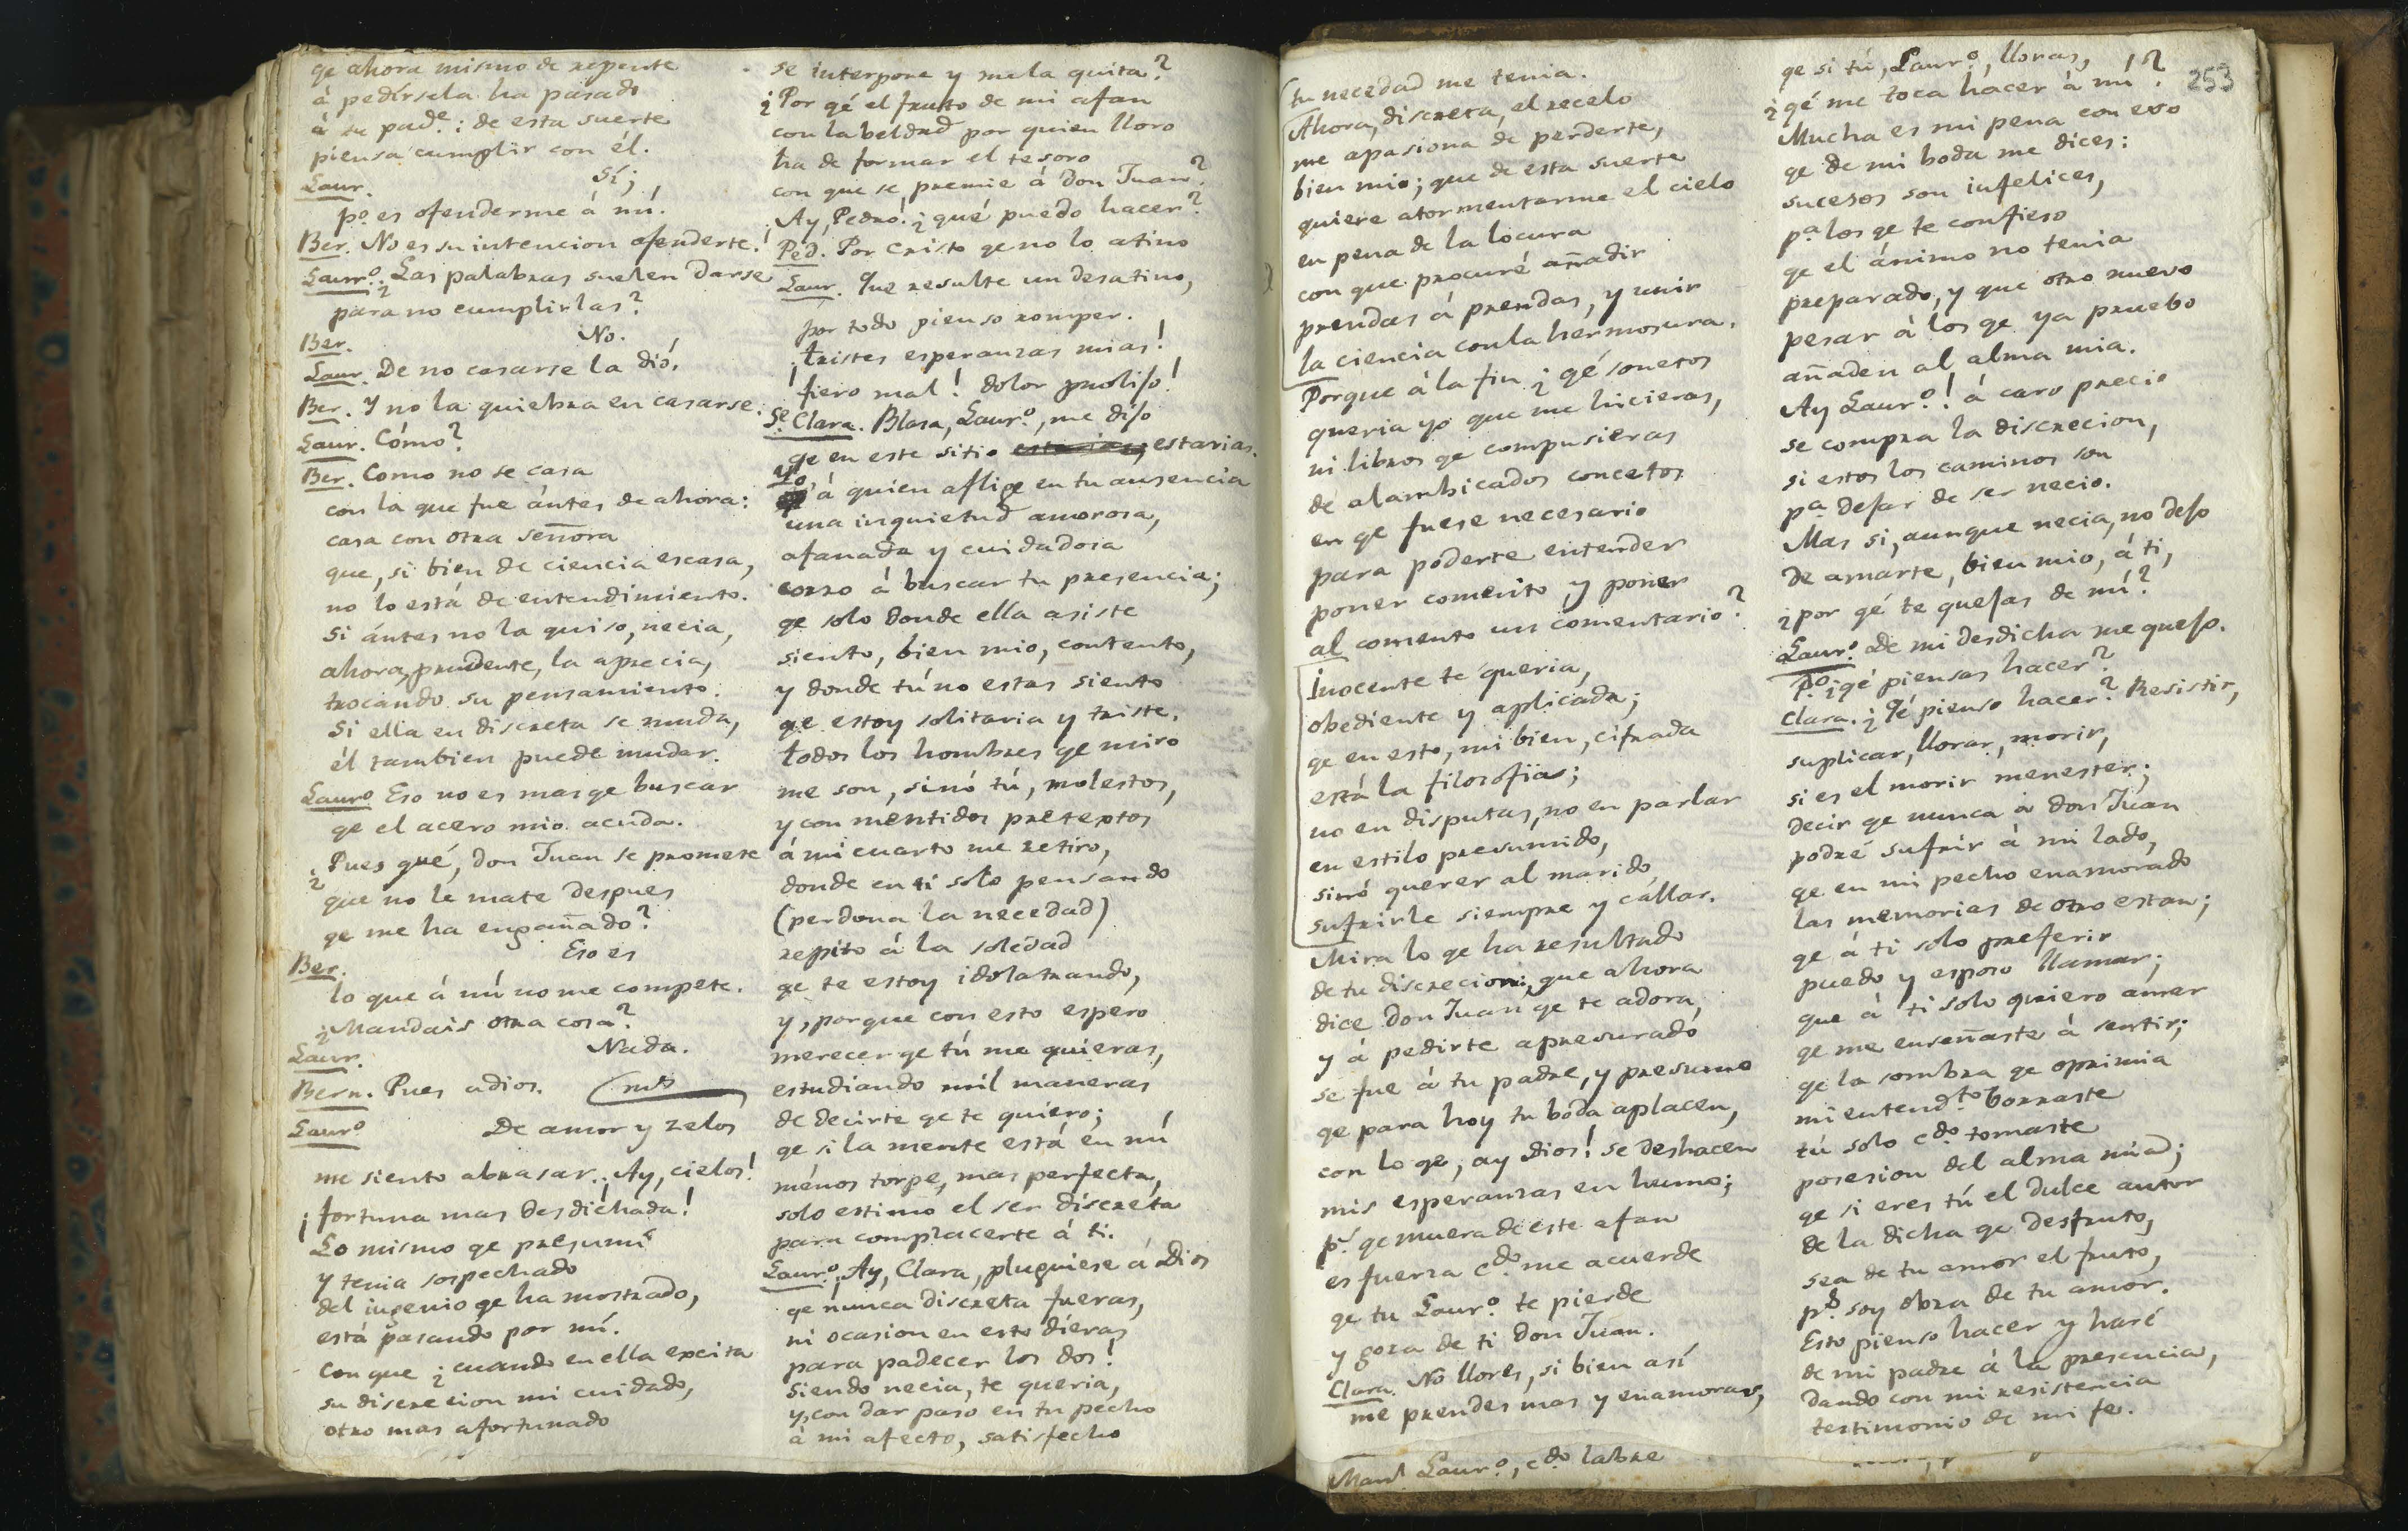 qe ahora mismo de repente
á pedírsela ha pasado
á tu pade.: de esta suerte
piensa cumplir con él.
Laur. Sí;
po. es ofenderme á mí.
Ber. No es su intencion ofenderte.
Lauro. ¿Las palabras suelen darse
para no cumplirlas?
Ber. No.
Laur. De no casarse la dió.
Ber. Y no la quiebra en casarse.
Laur. Cómo?
Ber. Como no se casa
con la que fue ántes de ahora:
casa con otra señora
que, si bien de ciencia escasa,
no lo está de entendimiento.
Si ántes no la quiso, necia,
ahora, prudente, la aprecia,
trocando su pensamiento.
Si ella en discreta se muda,
él tambien puede mudar.
Lauro Eso no es mas qe buscar
qe el acero mio acuda.
¿Pues qué, don Juan se promete
que no le mate despues
qe me ha engañado?
Ber. Eso es
lo que á mí no me compete.
¿Mandais otra cosa?
Laur. Nada.
Bern. Pues adios.
Lauro De amor y zelos
me siento abrasar. ¡Ay, cielos!
¡fortuna mas desdichada!
Lo mismo qe presumí
y tenia sospechado
del ingenio qe ha mostrado,
está pasando por mí.
Con que ¿cuando en ella excita
su discrecion mi cuidado,
otro mas afortunado
se interpone y me la quita?
¿Por qé el fruto de mi afan
con la beldad por quien lloro
ha de formar el tesoro
con que se premie á don Juan?
Ay, Pedro! ¿qué puedo hacer?
Ped. Por Cristo qe no lo atino
Laur. Que resulte un desatino,
por todo pienso romper.
¡tristes esperanzas mias!
¡fiero mal! dolor prolijo!
Se. Clara. Blasa, Lauro., me dijo
qe en este sitio estarias.
Yo á quien aflige en tu ausencia
una inquietud amorosa,
afanada y cuidadosa
corro á buscar tu presencia;
qe solo donde ella asiste
siento, bien mio, contento,
y donde tú no estas siento
qe estoy solitaria y triste.
todos los hombres qe miro
me son, sinó tú, molestos,
y con mentidos pretextos
á mi cuarto me retiro,
donde en ti solo pensando
(perdona la necedad)
repito á la soledad
qe te estoy idolatrando,
y, porque con esto espero
merecer qe tú me quieras,
estudiando mil maneras
de decirte qe te quiero;
qe si la mente está en mí
ménos torpe, mas perfecta,
solo estimo el ser discreta
para complacerte á ti.
Lauro. ¡Ay, Clara, pluguiese á Dios
qe nunca discreta fueras,
ni ocasion en esto dieras
para padecer los dos!
Siendo necia, te queria,
y, con dar paso en tu pecho
á mi afecto, satisfecho
tu necedad me tenia.
Ahora, discreta, el recelo
me apasiona de perderte,
bien mio; que de esta suerte
quiere atormentarme el cielo
en pena de la locura
con que procuré añadir
prendas á prendas, y unir
la ciencia con la hermosura.
Porque á la fin ¿qé sonetos
queria yo que me hicieras,
ni libros qe compusieras
de alambicados concetos
en qe fuese necesario
para poderte entender
poner comento, y poner
al comento un comentario?
Inocente te queria,
obediente y aplicada;
qe en esto, mi bien, cifrada
está la filosofia;
no en disputas, no en parlar
en estilo presumido,
sinó querer al marido,
sufrirle siempre y callar.
Mira lo qe ha resultado
de tu discrecion; que ahora
dice don Juan qe te adora,
y á pedirte apresurado
se fue á tu padre, y presumo
qe para hoy tu boda aplacen,
con lo qe, ay Dios! se deshacen
mis esperanzas en humo;
ps. qe muera de este afan
es fuerza cdo. me acuerde
qe tu Lauro. te pierde
y goza de ti don Juan.
Clara. No llores, si bien así
me prendes mas y enamoras,
Mand Lauro., cdo. labre
253
qe si tú, Lauro., lloras,
¿qé me toca hacer á mí?
Mucha es mi pena con eso
qe de mi boda me dices:
sucesos son infelices,
pa. los qe te confieso
qe el ánimo no tenia
preparado, y que otro nuevo
pesar á los qe ya pruebo
añaden al alma mia.
Ay Lauro.! á caro precio
se compra la discrecion,
si estos los caminos son
pa. dejar de ser necio.
Mas si, aunque necia, no dejo
de amarte, bien mio, á ti,
¿por qé te quejas de mí?
Lauro. De mi desdicha me quejo.
Po. ¿qé piensas hacer?
Clara. ¿Qé pienso hacer? Resistir,
suplicar, llorar, morir,
si es el morir menester;
decir qe nunca á don Juan
podré sufrir á mi lado,
qe en mi pecho enamorado
las memorias de otro estan;
qe á ti solo preferir
puedo y esposo llamar;
que á ti solo quiero amar
qe me enseñaste á sentir;
qe la sombra qe oprimia
mi entendto. borraste
tú solo cdo. tomaste
posesion del alma mia;
qe si eres tú el dulce autor
de la dicha qe desfruto,
sea de tu amor el fruto,
ps. soy obra de tu amor.
Esto pienso hacer y haré
de mi padre á la presencia,
dando con mi resistencia
testimonio de mi fe.